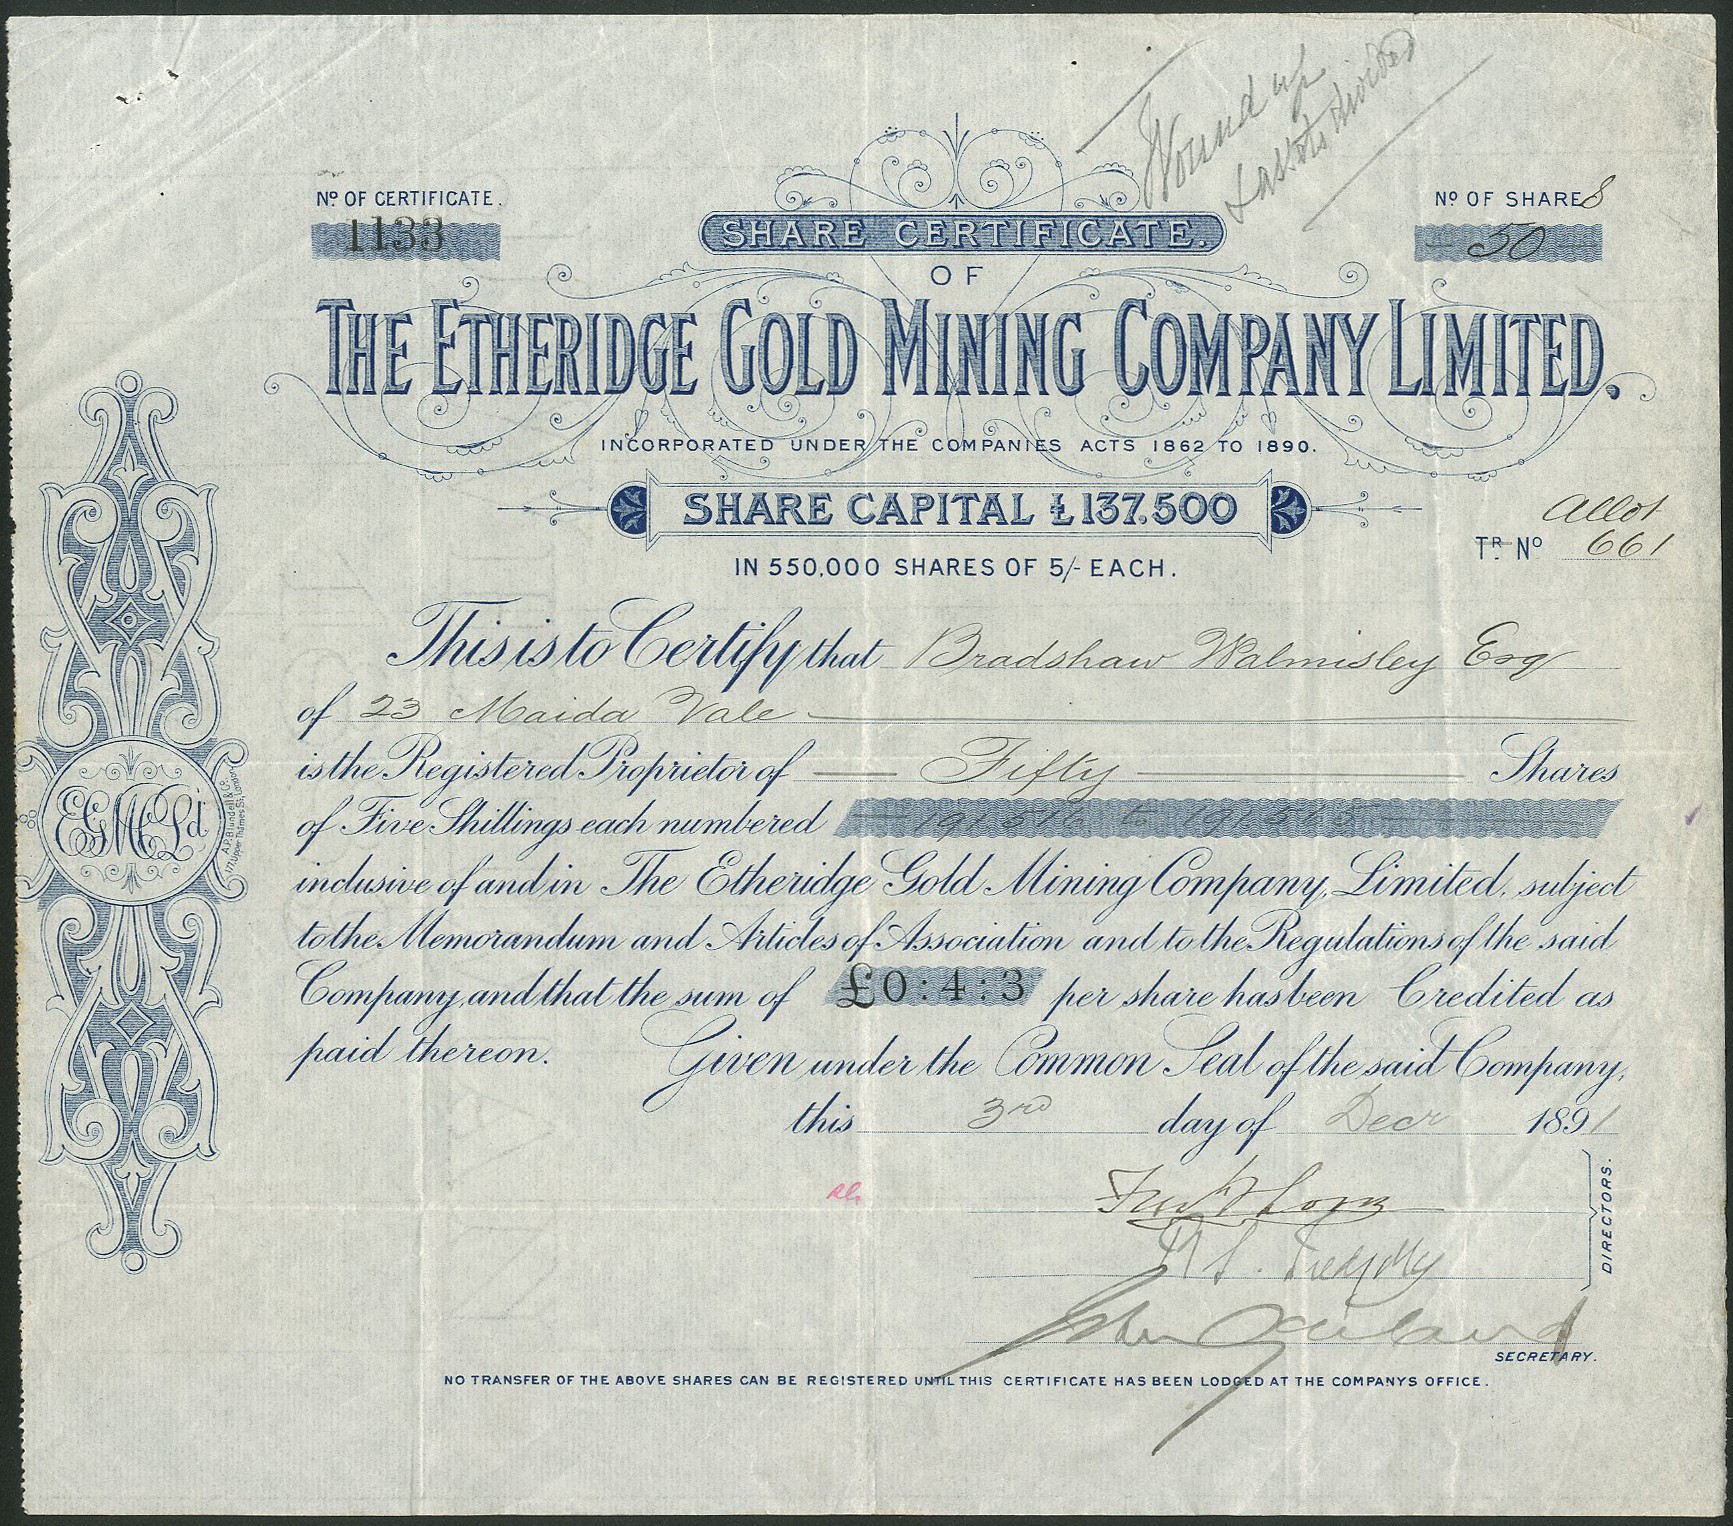 Wound up
& assets divided
No. OF CERTIFICATE.
1133
No. OF SHARES
50
SHARE CERTIFICATE.
OF
THE ETHERIDGE GOLD MINING COMPANY LIMITED.
INCORPORATED UNDER THE COMPANIES ACTS 1862 TO 1890.
SHARE CAPITAL £137.500
IN 550,000 SHARES OF 5/- EACH.
Allot
TR. No 661
This is to Certify that Bradshaw Walmisley Esq
of 23 Maida Vale
is the Registered Proprietor of Fifty Shares
of Five Shillings each numbered 191516 to
inclusive of and in The Etheridge Gold Mining Company, Limited, subject
to the Memorandum and Articles of Association and to the Regulations of the said
Company, and that the sum of £0:4:3 per share has been Credited as
paid thereon. Given under the Common Seal of the said Company,
this 3rd day of Decr 1891
DIRECTORS.
John
SECRETARY.
NO TRANSFER OF THE ABOVE SHARES CAN BE REGISTERED UNTIL THIS CERTIFICATE HAS BEEN LODGED AT THE COMPANYS OFFICE.
EGMCLd
A.P. Blundell & Co.
177, Upper Thames St, London